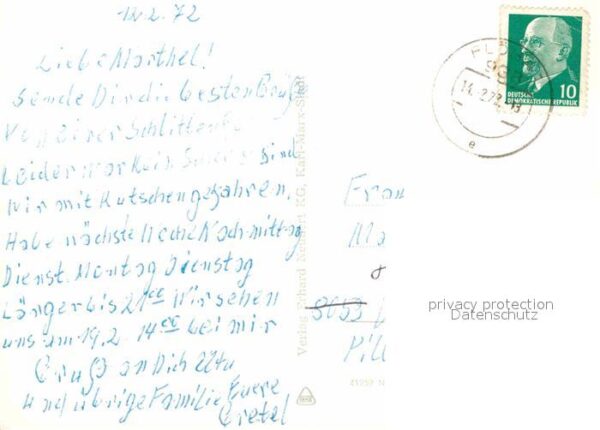 12.2.72
Liebe Marthel!
Sende Dir die besten Grüße
Von einer Schlitten
Leider war kein Schnee sind
Wir mit Kutschen gefahren.
Habe nächste Woche Nachmittag
Dienst. Montag Dienstag
Länger bis 21ºº Wir sehen
uns am 19.2. 14ºº bei mir
Gruß an Dich
und übrige Familie Euere
Gretel
Verlag Erhard Neubert KG, Karl-Marx-Stadt
FLÖ
14.-2.72-13
e
DEUTSCHE
DEMOKRATISCHE REPUBLIK
10
Frau
Ma
8053
Pil
privacy protection
Datenschutz